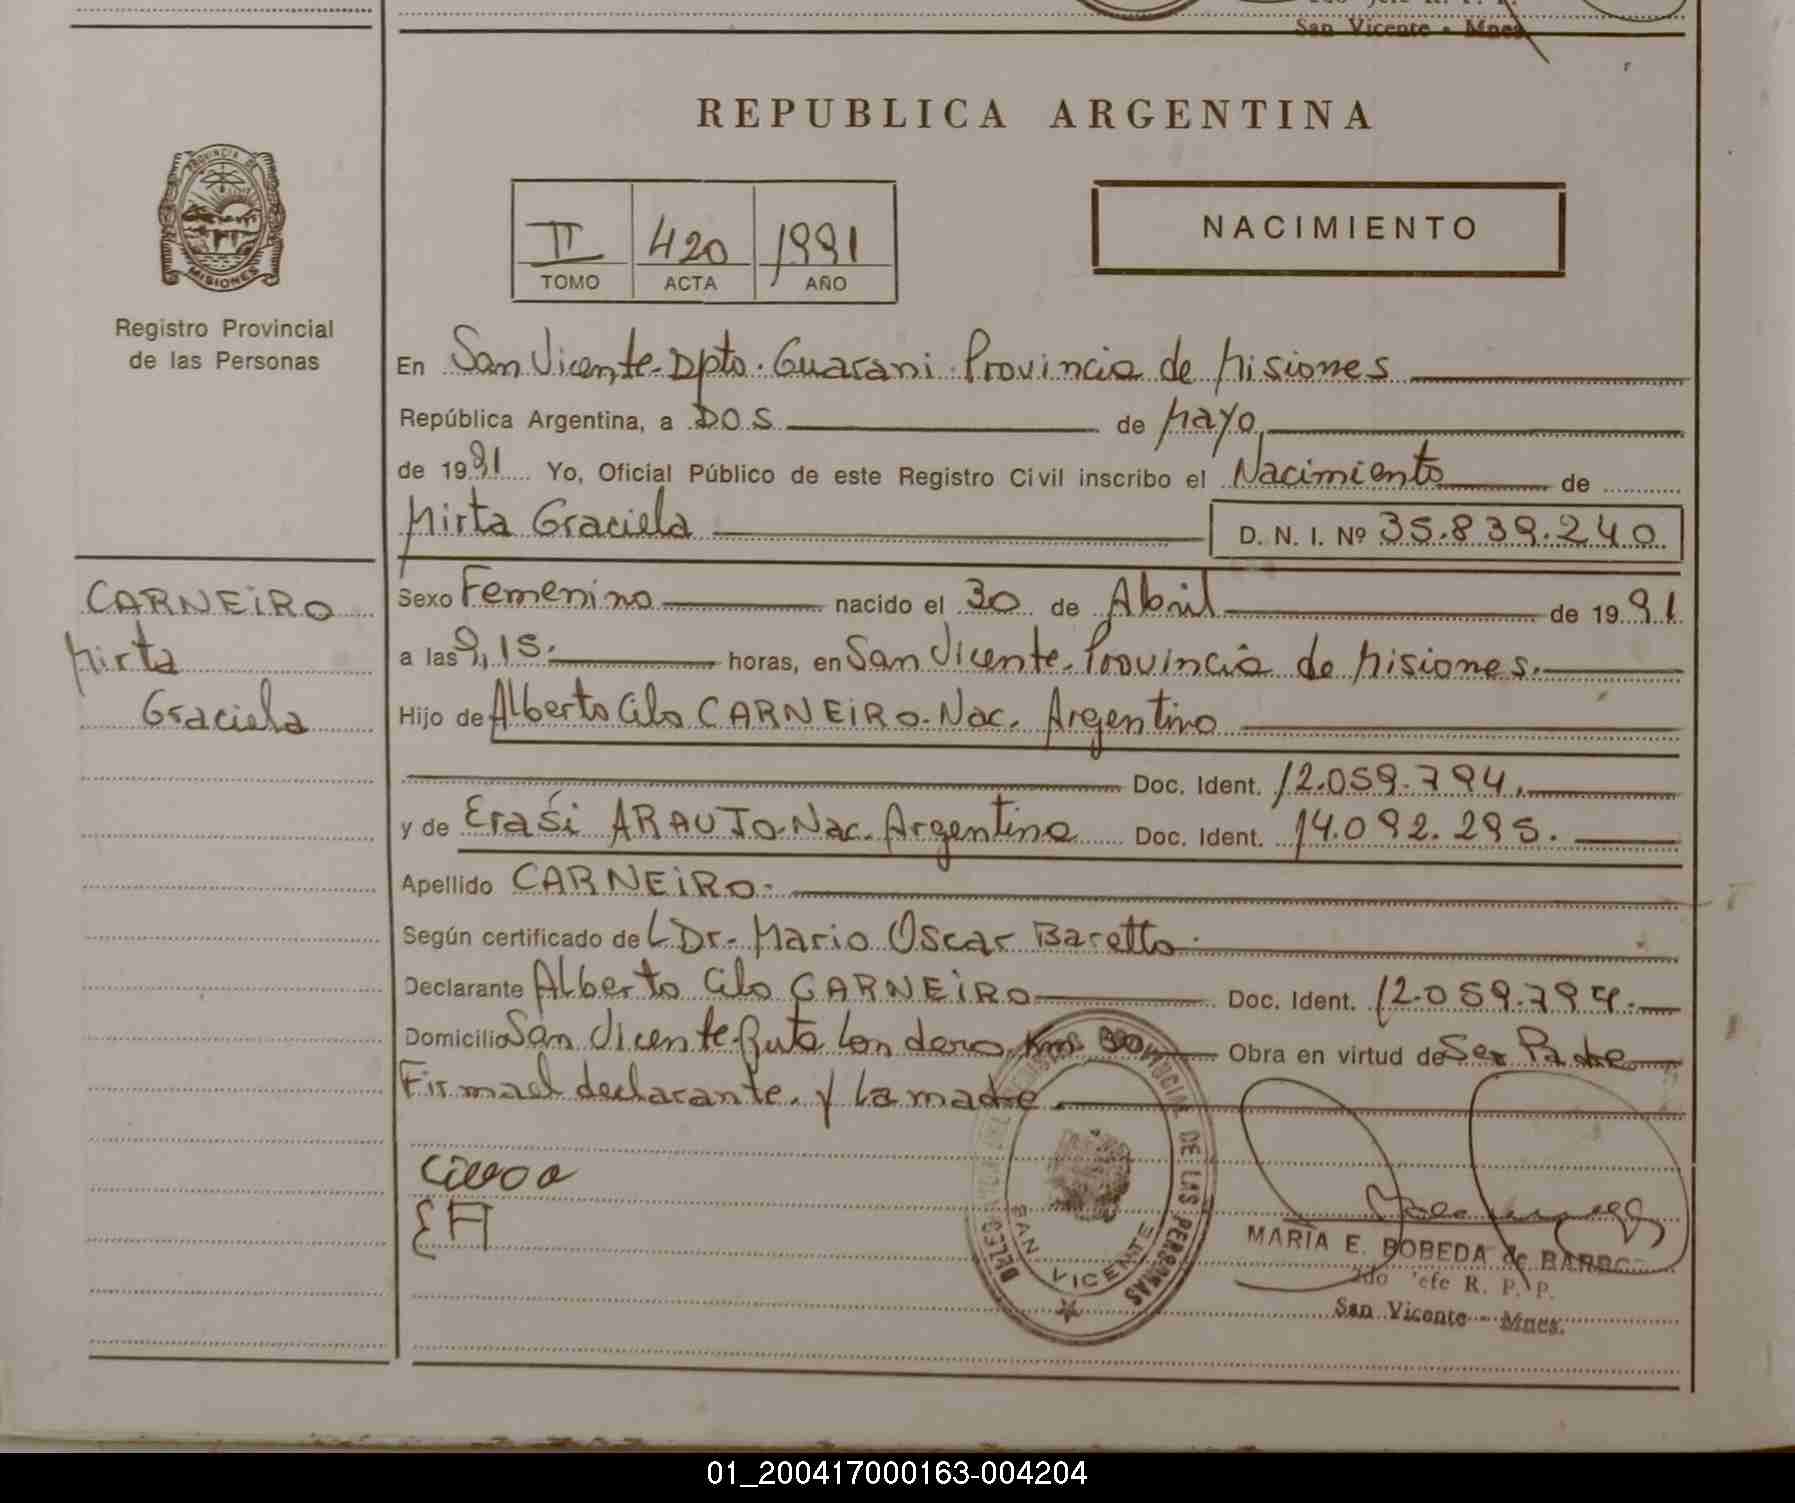 San Vicente - Mnes.
REPUBLICA ARGENTINA
PROVINCIA DE
MISIONES
II 420 1991
TOMO ACTA AÑO
NACIMIENTO
Registro Provincial
de las Personas
En San Vicente-Dpto. Guarani-Provincia de Misiones
República Argentina, a DOS de Mayo
de 1991 Yo, Oficial Público de este Registro Civil inscribo el Nacimiento de
Mirta Graciela D. N. I. Nº 35.839.240
CARNEiRO
Mirta
Graciela
Sexo Femenino nacido el 30 de Abril de 1991
a las 9,15. horas, en San Vicente-Provincia de Misiones.
Hijo de Alberto Cilo CARNEiRO-Nac. Argentino
Doc. Ident. 12.059.794.
y de Erasi ARAUJO-Nac. Argentina Doc. Ident. 14.092.295.
Apellido CARNEiRO-
Según certificado de L Dr. Mario Oscar Baretto.
Declarante Alberto Cilo CARNEiRO Doc. Ident. 12.059.794.
Domicilio San Vicente-Ruta Londero Kms Obra en virtud de Ser Padre
Firma el declarante y la madre
EA
DELEGACION DEL REGISTRO PROVINCIAL DE LAS PERSONAS
SAN VICENTE
MARIA E. BOBEDA de
2do Jefe R. P. P.
San Vicente - Mnes.
01_200417000163-004204